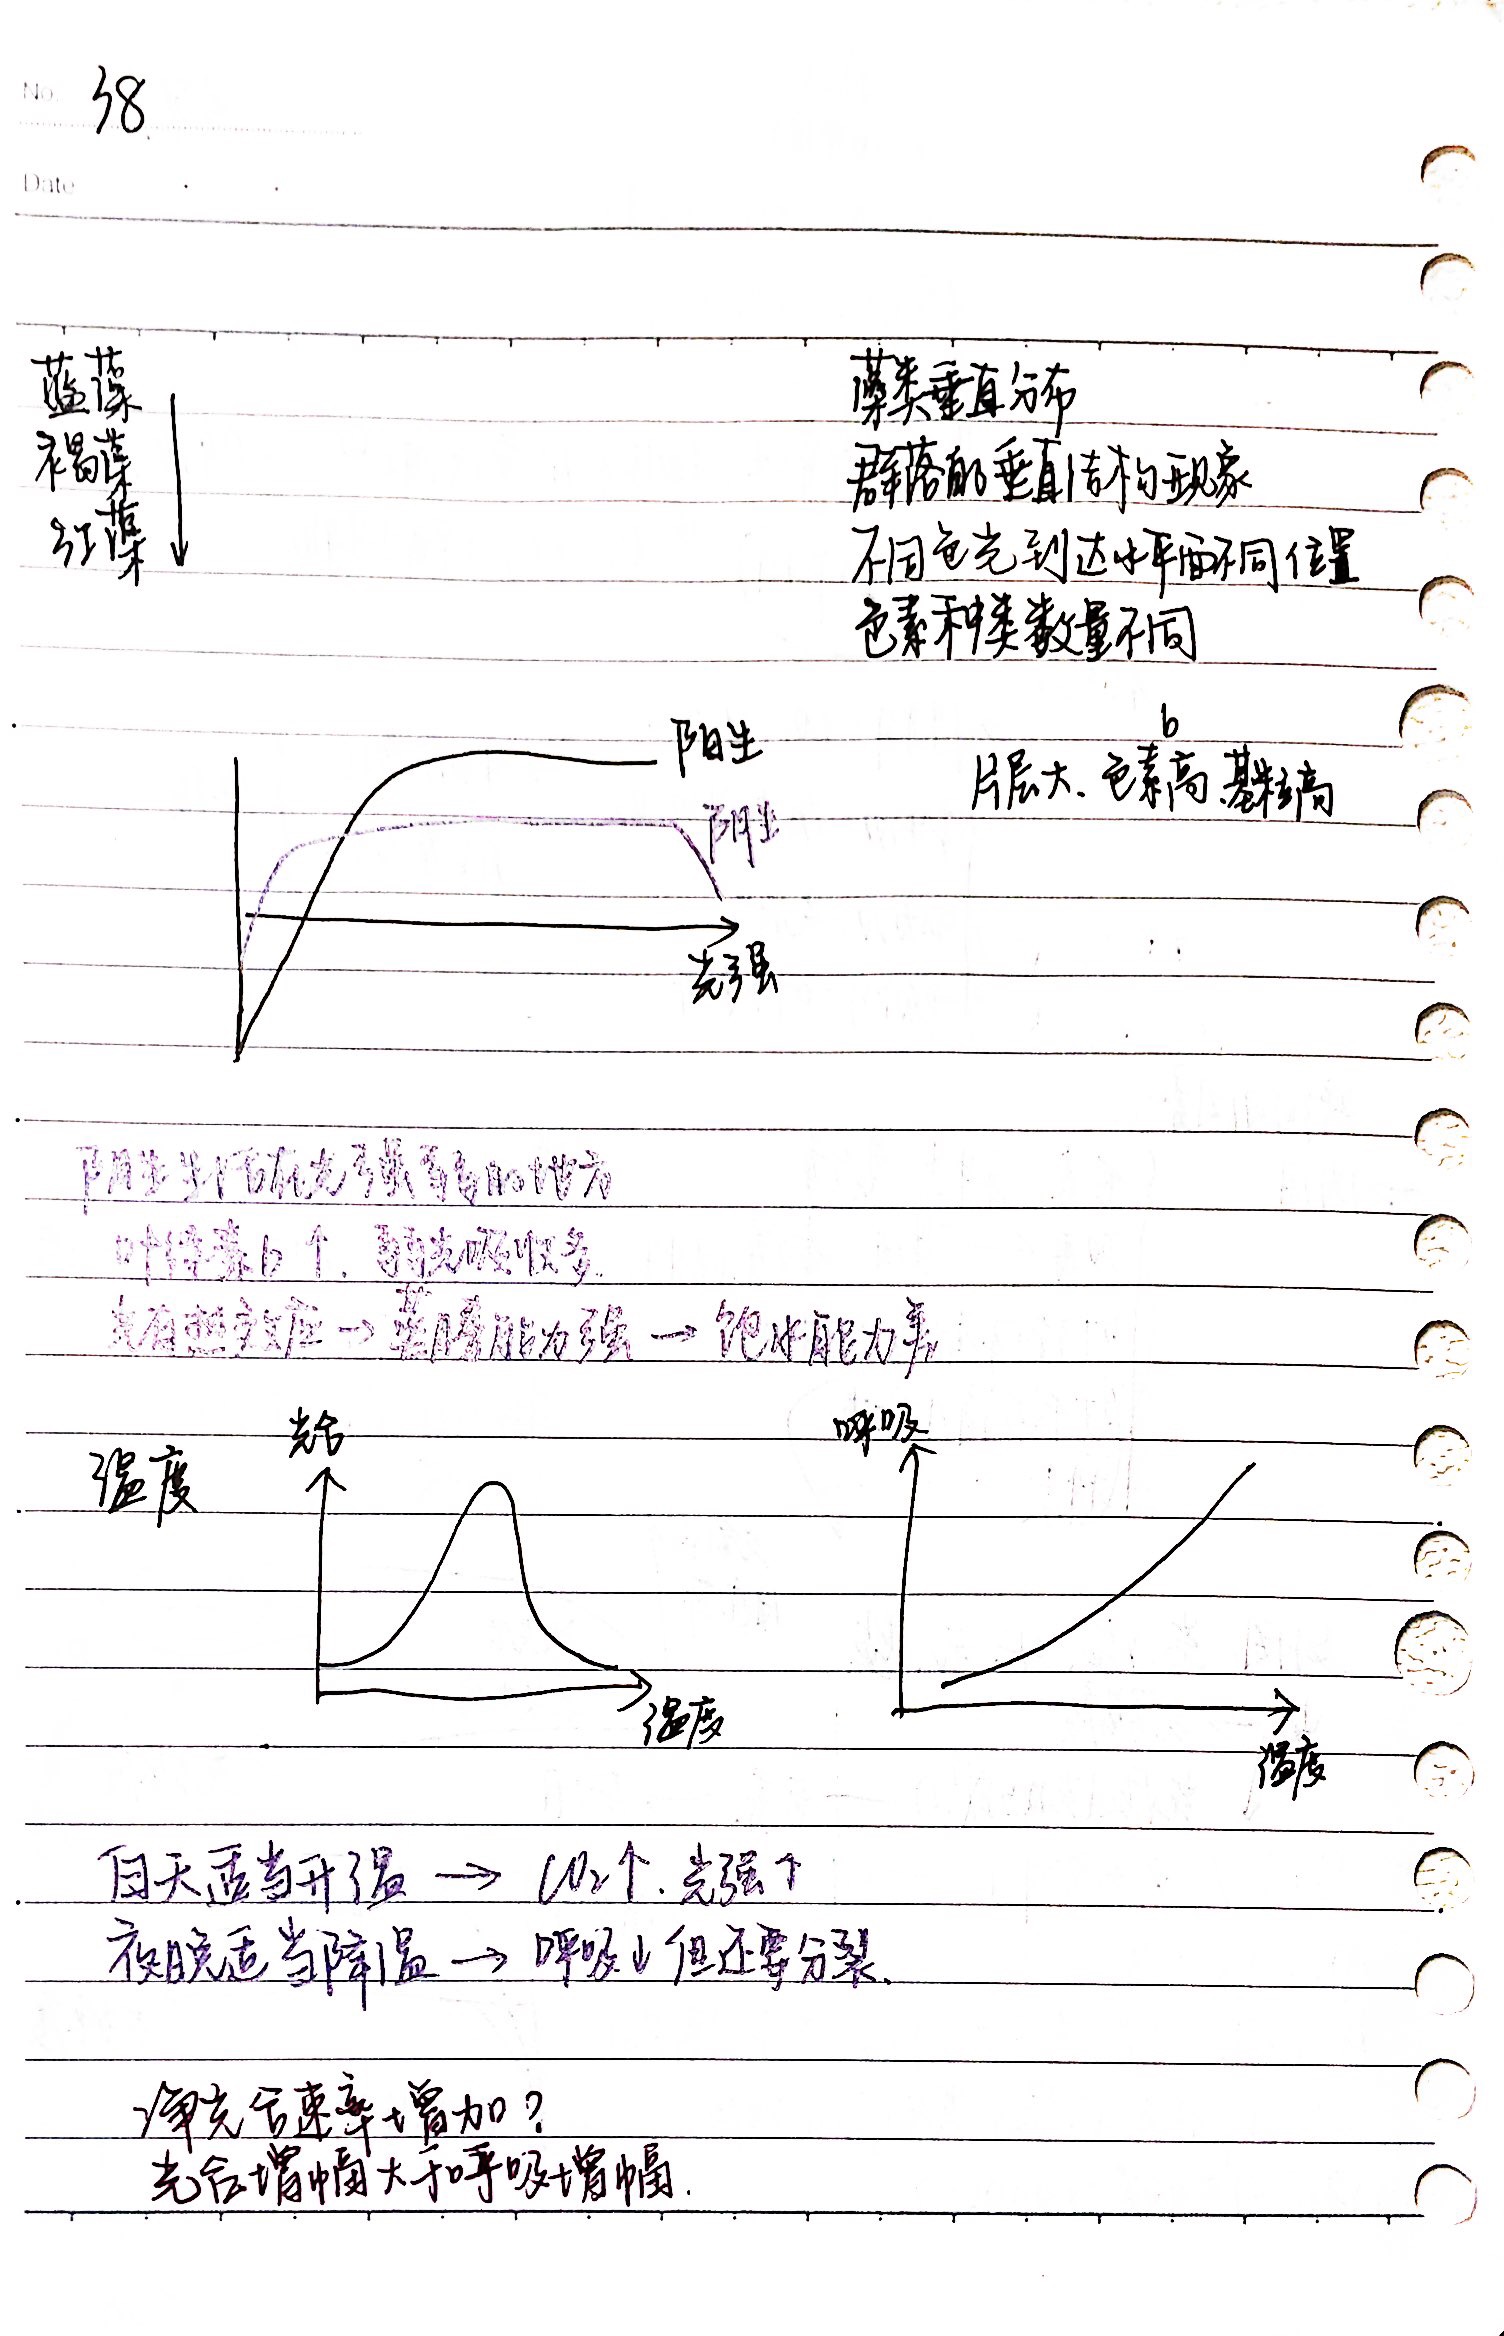 No. 38
Date
蓝藻
褐藻
红藻
藻类垂直分布
群落的垂直结构现象
不同色光到达水平面不同位置
色素种类数量不同
阳生
阴生
光强
b
片层大、色素高、基粒高
阴生生活在光强弱的地方
叶绿素b↑. 弱光吸收多.
→蒸腾能力强→ 能力差
温度
光合
温度
呼吸
温度
白天适当升温 → CO2↑. 光强↑
夜晚适当降温 → 呼吸↓但还要分裂.
净光合速率增加?
光合增幅大于呼吸增幅.